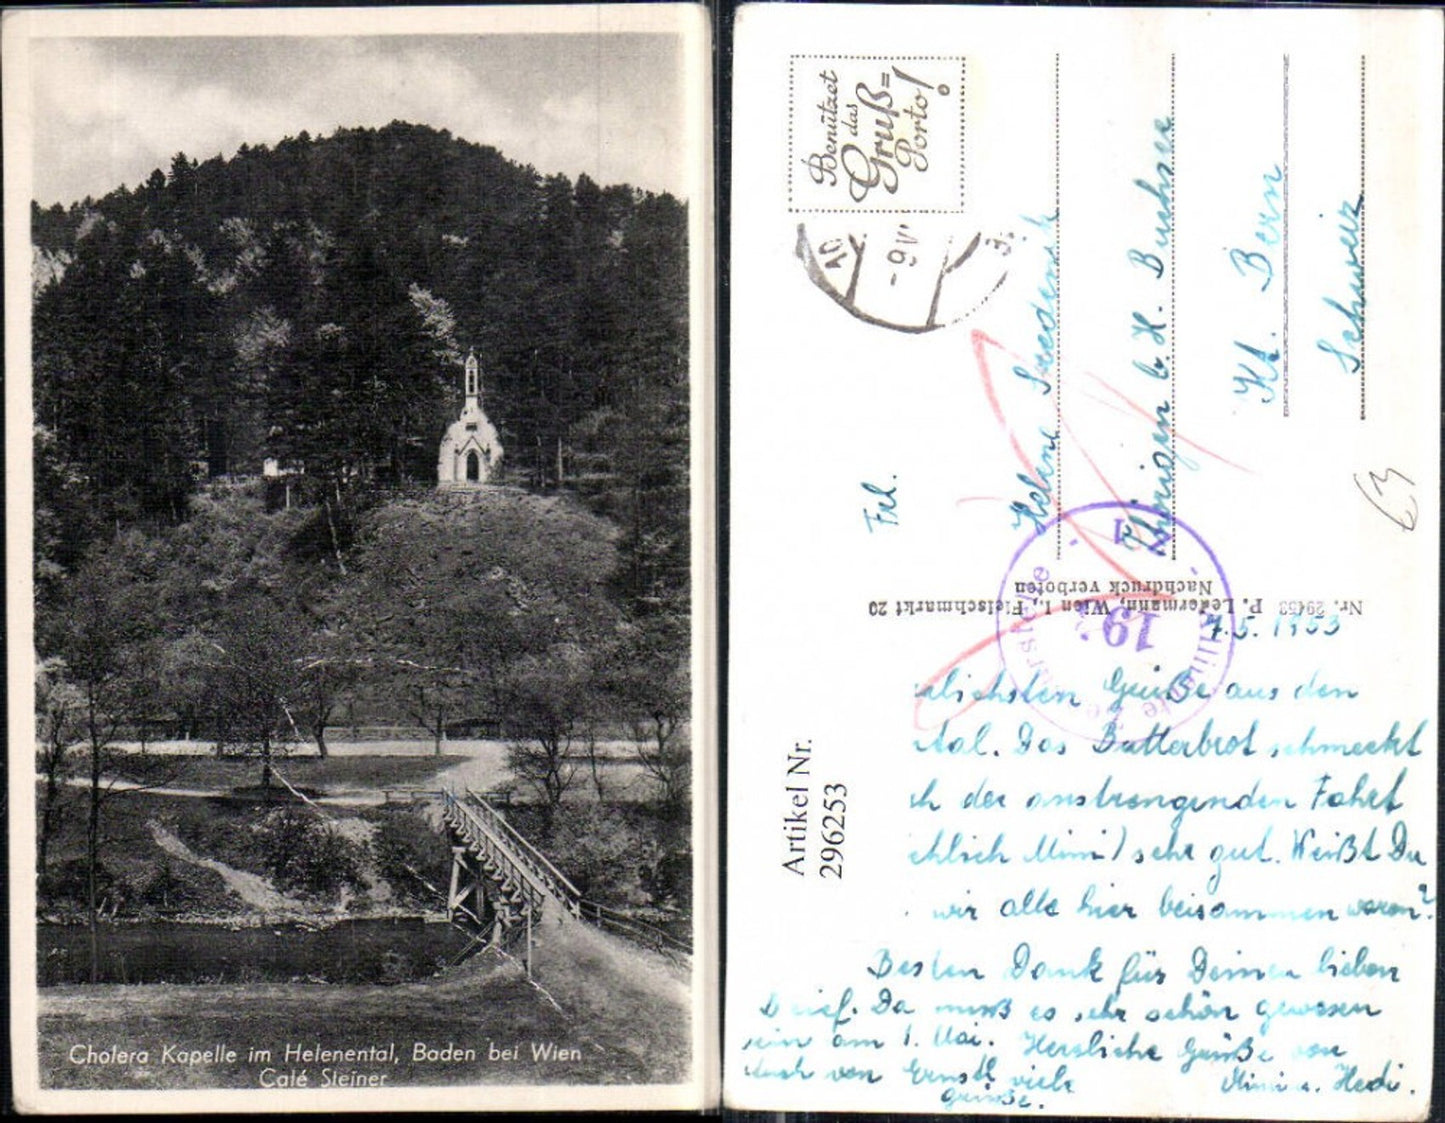 Cholera Kapelle im Helenental, Baden bei Wien
Café Steiner
Benützet
das
Gruß=
Porto!
10
- 9.V.
3.
Frl.
Helene
Thörigen b. H. Buchsee
Kt. Bern
Schweiz
63
Nr. 29453 P. Ledermann, Wien I., Fleischmarkt 20
Nachdruck verboten
19.
Artikel Nr.
296253
7.5.1953
lichsten Grüße aus den
tal. Das Butterbrot schmeckt
ch der anstrengenden Fahrt
chlich Mimi) sehr gut. Weißt Du
wir alle hier beisammen waren?
Besten Dank für Deinen lieben
Brief. Da muß es sehr schön gewesen
sein am 1. Mai. Herzliche Grüße von
Auch von Ernstl viele
Grüße.
Mimi u. Hedi.